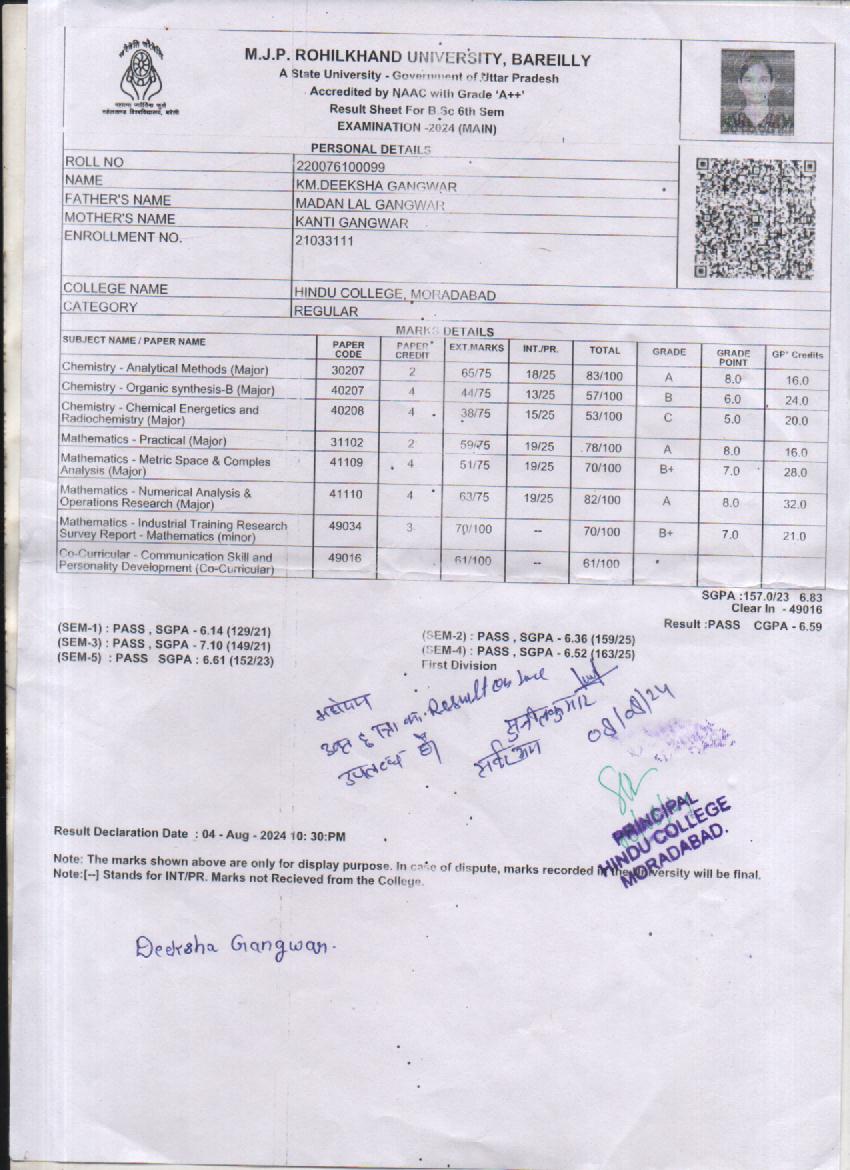 M.J.P. ROHILKHAND UNIVERSITY, BAREILLY
A State University - Government of Uttar Pradesh
Accredited by NAAC with Grade 'A++'
Result Sheet For B.Sc 6th Sem
EXAMINATION -2024 (MAIN)
PERSONAL DETAILS
ROLL NO 220076100099
NAME KM.DEEKSHA GANGWAR
FATHER'S NAME MADAN LAL GANGWAR
MOTHER'S NAME KANTI GANGWAR
ENROLLMENT NO. 21033111
COLLEGE NAME HINDU COLLEGE, MORADABAD
CATEGORY REGULAR
MARKS DETAILS
SUBJECT NAME / PAPER NAME PAPER CODE PAPER CREDIT EXT.MARKS INT./PR. TOTAL GRADE GRADE POINT GP* Credits
Chemistry - Analytical Methods (Major) 30207 2 65/75 18/25 83/100 A 8.0 16.0
Chemistry - Organic synthesis-B (Major) 40207 4 44/75 13/25 57/100 B 6.0 24.0
Chemistry - Chemical Energetics and
Radiochemistry (Major) 40208 4 38/75 15/25 53/100 C 5.0 20.0
Mathematics - Practical (Major) 31102 2 59/75 19/25 78/100 A 8.0 16.0
Mathematics - Metric Space & Comples
Analysis (Major) 41109 4 51/75 19/25 70/100 B+ 7.0 28.0
Mathematics - Numerical Analysis &
Operations Research (Major) 41110 4 63/75 19/25 82/100 A 8.0 32.0
Mathematics - Industrial Training Research
Survey Report - Mathematics (minor) 49034 3 70/100 -- 70/100 B+ 7.0 21.0
Co-Curricular - Communication Skill and
Personality Development (Co-Curricular) 49016 61/100 -- 61/100 *
SGPA :157.0/23 6.83
Clear In - 49016
Result :PASS CGPA - 6.59
(SEM-1) : PASS , SGPA - 6.14 (129/21) (SEM-2) : PASS , SGPA - 6.36 (159/25)
(SEM-3) : PASS , SGPA - 7.10 (149/21) (SEM-4) : PASS , SGPA - 6.52 (163/25)
(SEM-5) : PASS SGPA : 6.61 (152/23) First Division
महोदय
Result on line
उपलब्ध है।
08/08/24
PRINCIPAL
HINDU COLLEGE
MORADABAD.
Result Declaration Date : 04 - Aug - 2024 10: 30:PM
Note: The marks shown above are only for display purpose. In case of dispute, marks recorded in the University will be final.
Note:[--] Stands for INT/PR. Marks not Recieved from the College.
Deeksha Gangwar.